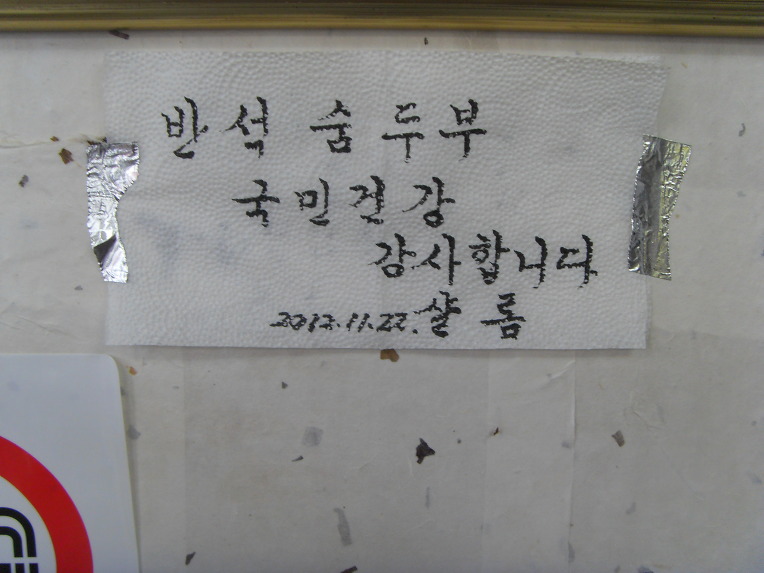 반석 숨두부
국민건강
감사합니다
2012.11.22. 샬롬